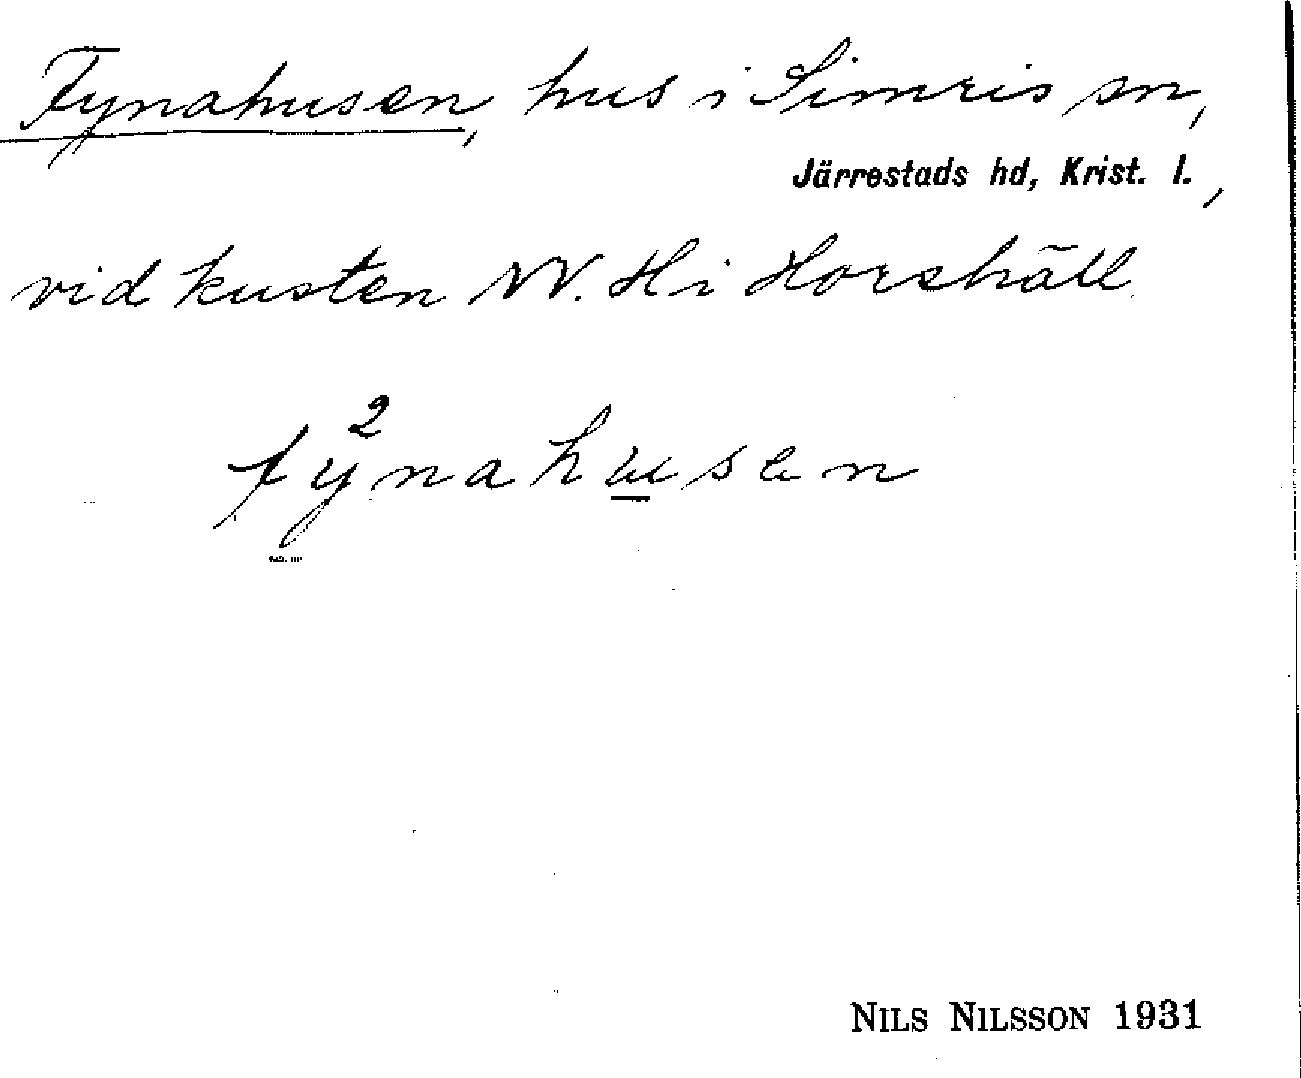 Fynahusen, hus i Simris sn,
Järrestads hd, Krist. l.,
vid kusten NV. H i Horshäll
fy²nahusen
NILS NILSSON 1931